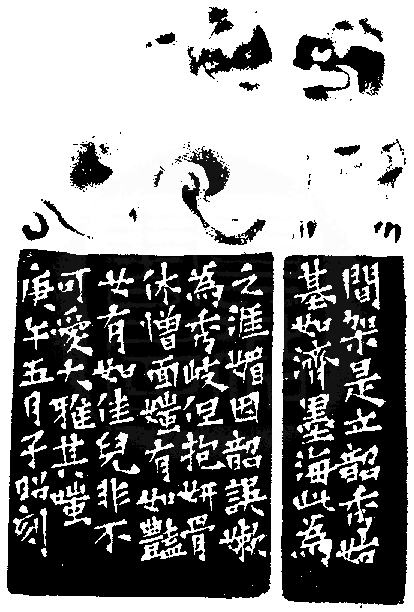 間架是立韶秀始
基如濟墨海此為
之涯媚因韶誤嫩
為秀岐但抱妍骨
休憎面媸有如豔
女有如佳兒非不
可愛大雅其嗤
庚午五月子昭刻